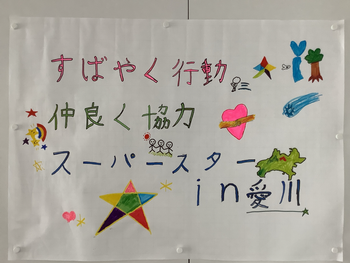 すばやく行動
仲良く協力
スーパースター
in愛川